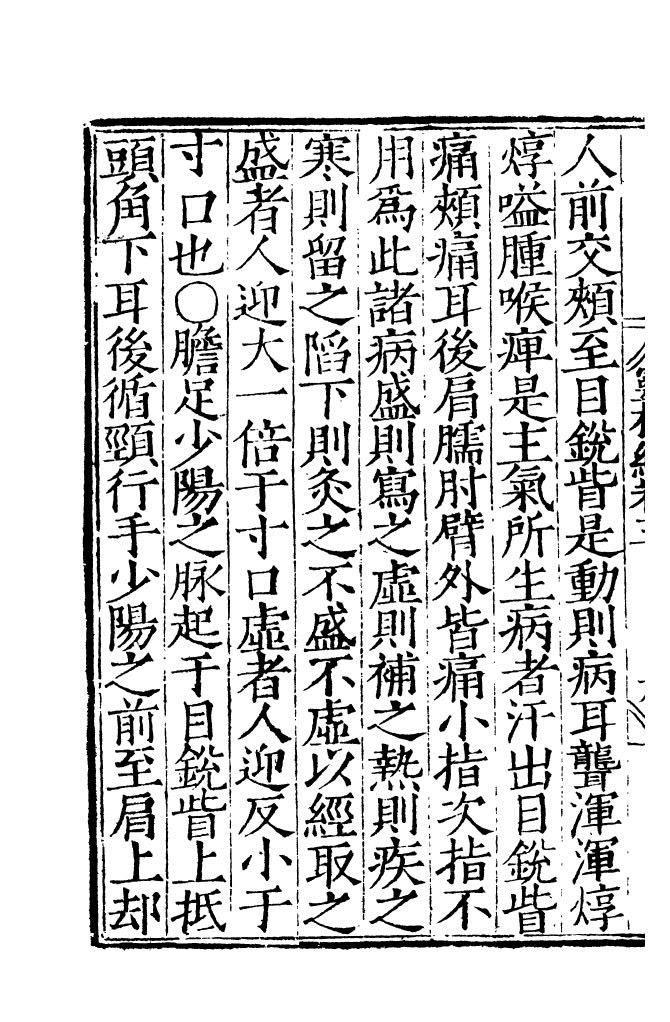 人前交頰至目銳眥是動則病耳聾渾渾焞
焞嗌腫喉痺是主氣所生病者汗出目銳眥
痛頰痛耳後肩臑肘臂外皆痛小指次指不
用爲此諸病盛則寫之虛則補之熱則疾之
寒則留之陷下則灸之不盛不虛以經取之
盛者人迎大一倍于寸口虛者人迎反小于
寸口也○膽足少陽之脉起于目銳眥上抵
頭角下耳後循頸行手少陽之前至肩上却